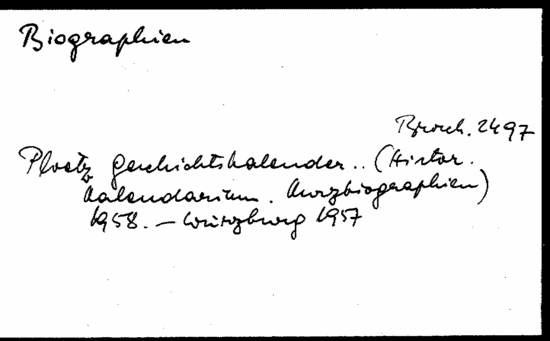 Biographien
Brosch. 2497
Ploetz Geschichtskalender.. (Histor.
Kalendarium. Kurzbiographien)
1958. – Würzburg 1957